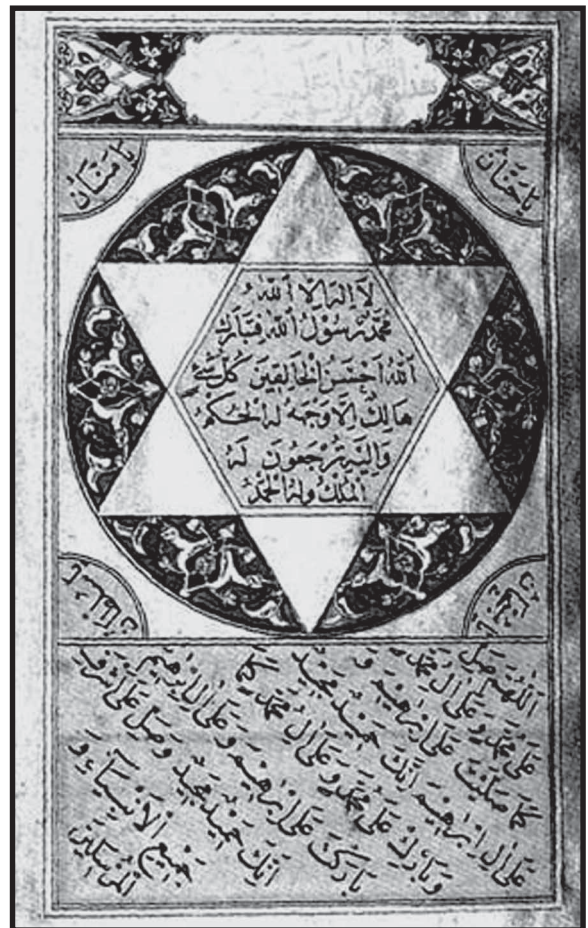 يا حنان
يا منان
لا اله الا الله
محمد رسول الله فتبارك
الله احسن الخالقين كل شئ
هالك الا وجهه له الحكم
واليه ترجعون له
الملك وله الحمد
يا سبحان
يا سلطان
اللهم صل
على محمد وعلى ال محمد
كما صليت على ابرهيم و
على ال ابرهيم انك حميد مجيد
وبارك على محمد وعلى ال محمد كما
باركت على ابرهيم وعلى ال ابرهيم
انك حميد مجيد وصل على اشرف
جميع الانبياء و
المرسلين